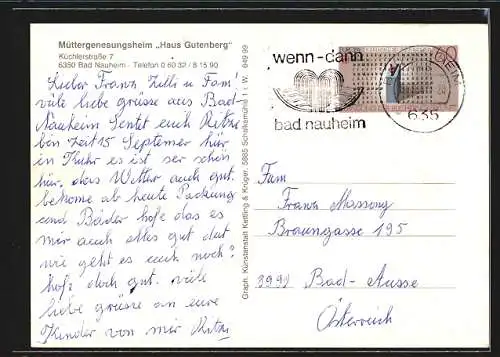 Müttergenesungsheim „Haus Gutenberg"
Küchlerstraße 7
6350 Bad Nauheim - Telefon 0 60 32 / 8 15 90
Lieber Franz Zilli u Fam'
viele liebe grüsse aus Bad-
Nauheim Sentet euch Ritzi
ben Zeit 15 September hir
in Kuhr es ist ser schön
hir, das Wetter auch gut.
bekome ab heute Packung
und Bäder hofe das es
mir auch alles gut dut
wie geht es euch noch?
hofe doch gut. viele
liebe grüsse an eure
Kinder von mir Ritzi
Graph. Kunstanstalt Ketting & Krüger, 5885 Schalksmühle 1 i. W. 649 99
wenn-dann
bad nauheim
635
Fam
Franz Massong
Braungasse 195
8992 Bad-Ausse
Österreich